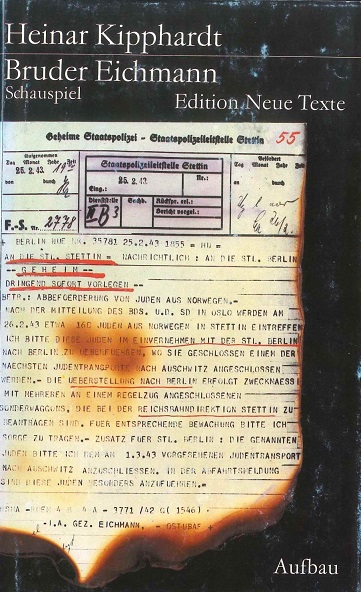 Heinar Kipphardt
Bruder Eichmann
Schauspiel
Edition Neue Texte
Geheime Staatspolizei - Staatspolizeileitstelle Stettin
55
Aufgenommen
Tag Monat Jahr Zeit
25. 2. 43
von durch
Staatspolizeileitstelle Stettin
25. 2. 43.
Nr.:
Eing.:
Dienststelle Sachb. Rückspr. erl.:
II B 3
Bericht vorgel.:
Befördert
Tag Monat Jahr Zeit
an durch
F.-S. Nr. 2778
+ BERLIN NUE NR. 35781 25.2.43 1855 = HN =
AN DIE STL. STETTIN = NACHRICHTLICH : AN DIE STL. BERLIN
-- G E H E I M --
DRINGEND SOFORT VORLEGEN --
BETR.: ABBEFOERDERUNG VON JUDEN AUS NORWEGEN.-
NACH DER MITTEILUNG DES BDS. U.D. SD IN OSLO WERDEN AM
26.2.43 ETWA 160 JUDEN AUS NORWEGEN IN STETTIN EINTREFFEN
ICH BITTE DIESE JUDEN IM EINVERNEHMEN MIT DER STL. BERLIN
NACH BERLIN ZU UEBERFUEHREN, WO SIE GESCHLOSSEN EINEM DER
NAECHSTEN JUDENTRANSPORTE NACH AUSCHWITZ ANGESCHLOSSEN
WERDEN.- DIE UEBERSTELLUNG NACH BERLIN ERFOLGT ZWECKMAESSI
MIT MEHREREN AN EINEM REGELZUG ANGESCHLOSSENEN
SONDERWAGGONS, DIE BEI DER REICHSBAHNDIREKTION STETTIN ZU
BEANTRAGEN SIND. FUER ENTSPRECHENDE BEWACHUNG BITTE ICH
SORGE ZU TRAGEN.- ZUSATZ FUER STL. BERLIN : DIE GENANNTEN
JUDEN BITTE ICH DEM AM 1.3.43 VORGESEHENEN JUDENTRANSPORT
NACH AUSCHWITZ ANZUSCHLIESSEN. IN DER ABFAHRTSMELDUNG
SIND DIESE JUDEN BESONDERS ANZUFUEHREN.-
4 A - 3771 /42 G ( 1546) -
I.A. GEZ. EICHMANN, - OSTUBAF +
Aufbau